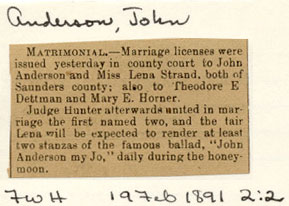 Anderson, John
MATRIMONIAL.—Marriage licenses were
issued yesterday in county court to John
Anderson and Miss Lena Strand, both of
Saunders county; also to Theodore E
Dettman and Mary E. Horner.
Judge Hunter afterwards united in mar-
riage the first named two, and the fair
Lena will be expected to render at least
two stanzas of the famous ballad, "John
Anderson my Jo," daily during the honey-
moon.
FWH 19 Feb 1891 2:2